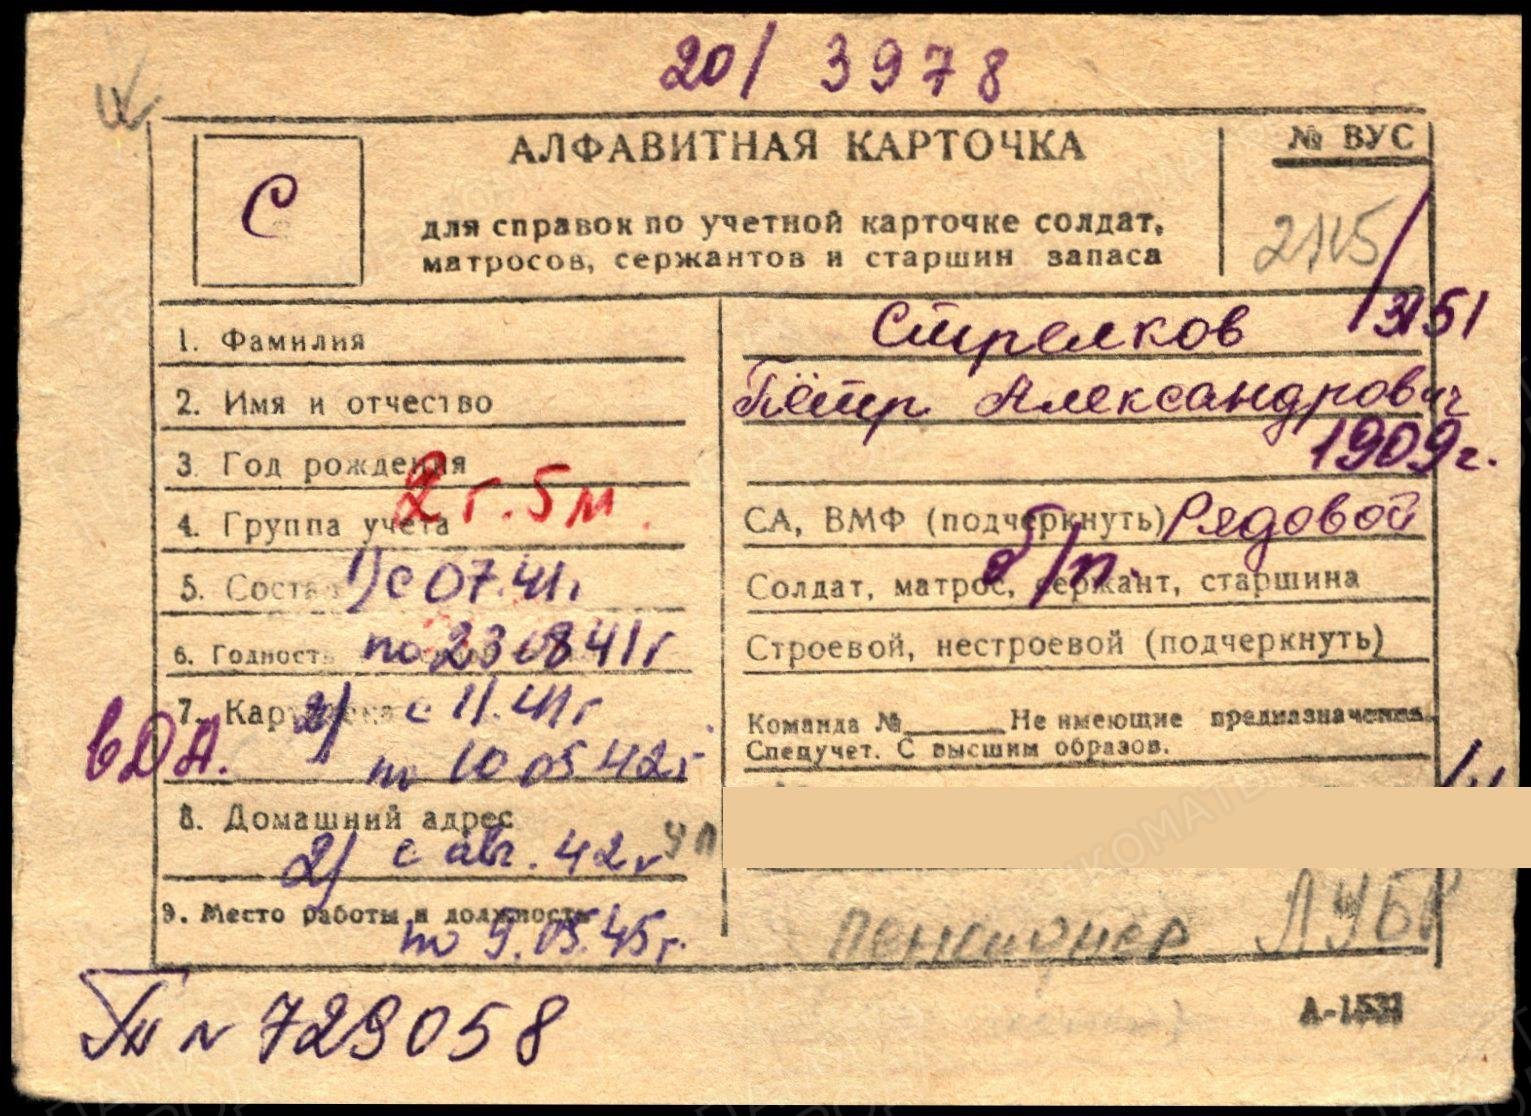 20/ 3978
АЛФАВИТНАЯ КАРТОЧКА
№ ВУС
С
для справок по учетной карточке солдат,
матросов, сержантов и старшин запаса
1. Фамилия
Стрелков
3151
2. Имя и отчество
Пётр Александрович
3. Год рождения
1909г.
2 г. 5 м.
4. Группа учета
СА, ВМФ (подчеркнуть) Рядовой
5. Состав
1) с 07.41г
б/п.
Солдат, матрос, сержант, старшина
6. Годность
по 23 08 41г
Строевой, нестроевой (подчеркнуть)
7.
2) с 11.41г
Команда № Не имеющие предназначения.
Спецучет. С высшим образов.
вДА.
по 10 05 42г
8. Домашний адрес
2) с авг. 42г
9. Место работы и должность
по 9.05.45г.
пенсионер
Тп № 729058
А-1531